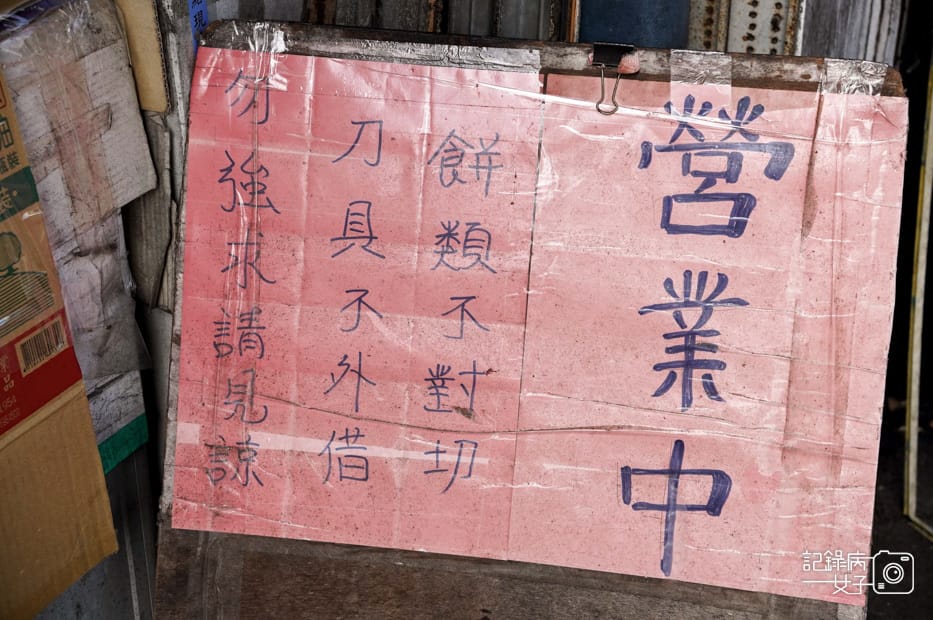 營業中
餅類不對切
刀具不外借
勿強求請見諒
記錄病
女子